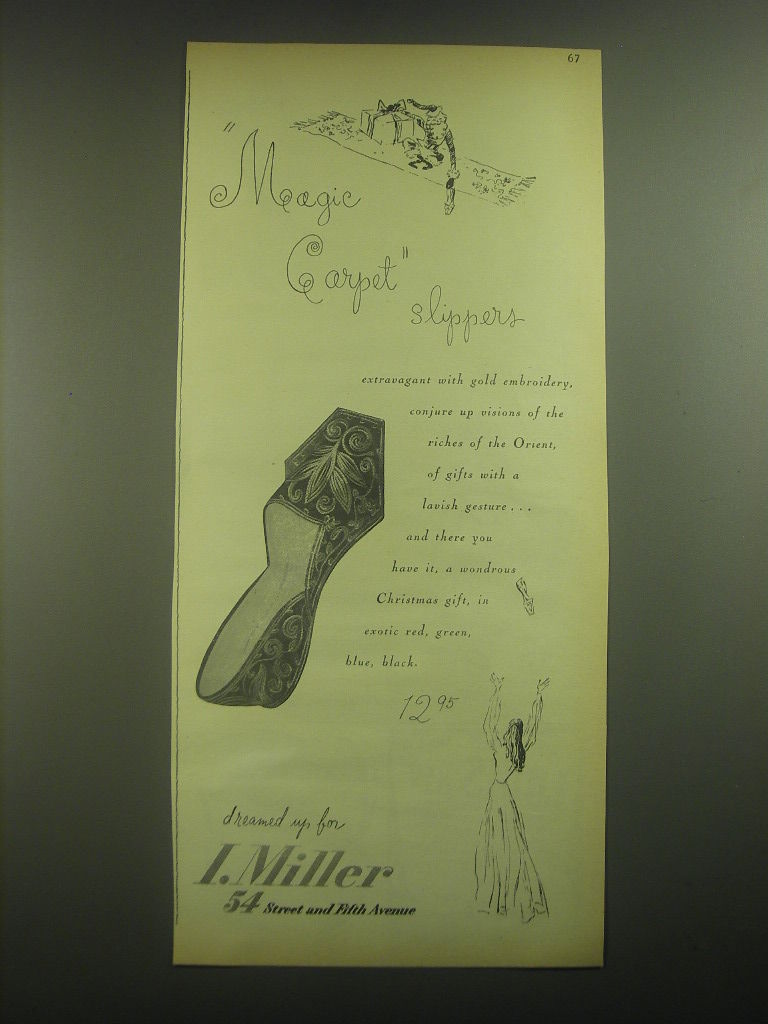 67
"Magic
Carpet"
slippers
extravagant with gold embroidery,
conjure up visions of the
riches of the Orient,
of gifts with a
lavish gesture...
and there you
have it, a wondrous
Christmas gift, in
exotic red, green,
blue, black.
12 95
dreamed up for
I. Miller
54 Street and Fifth Avenue